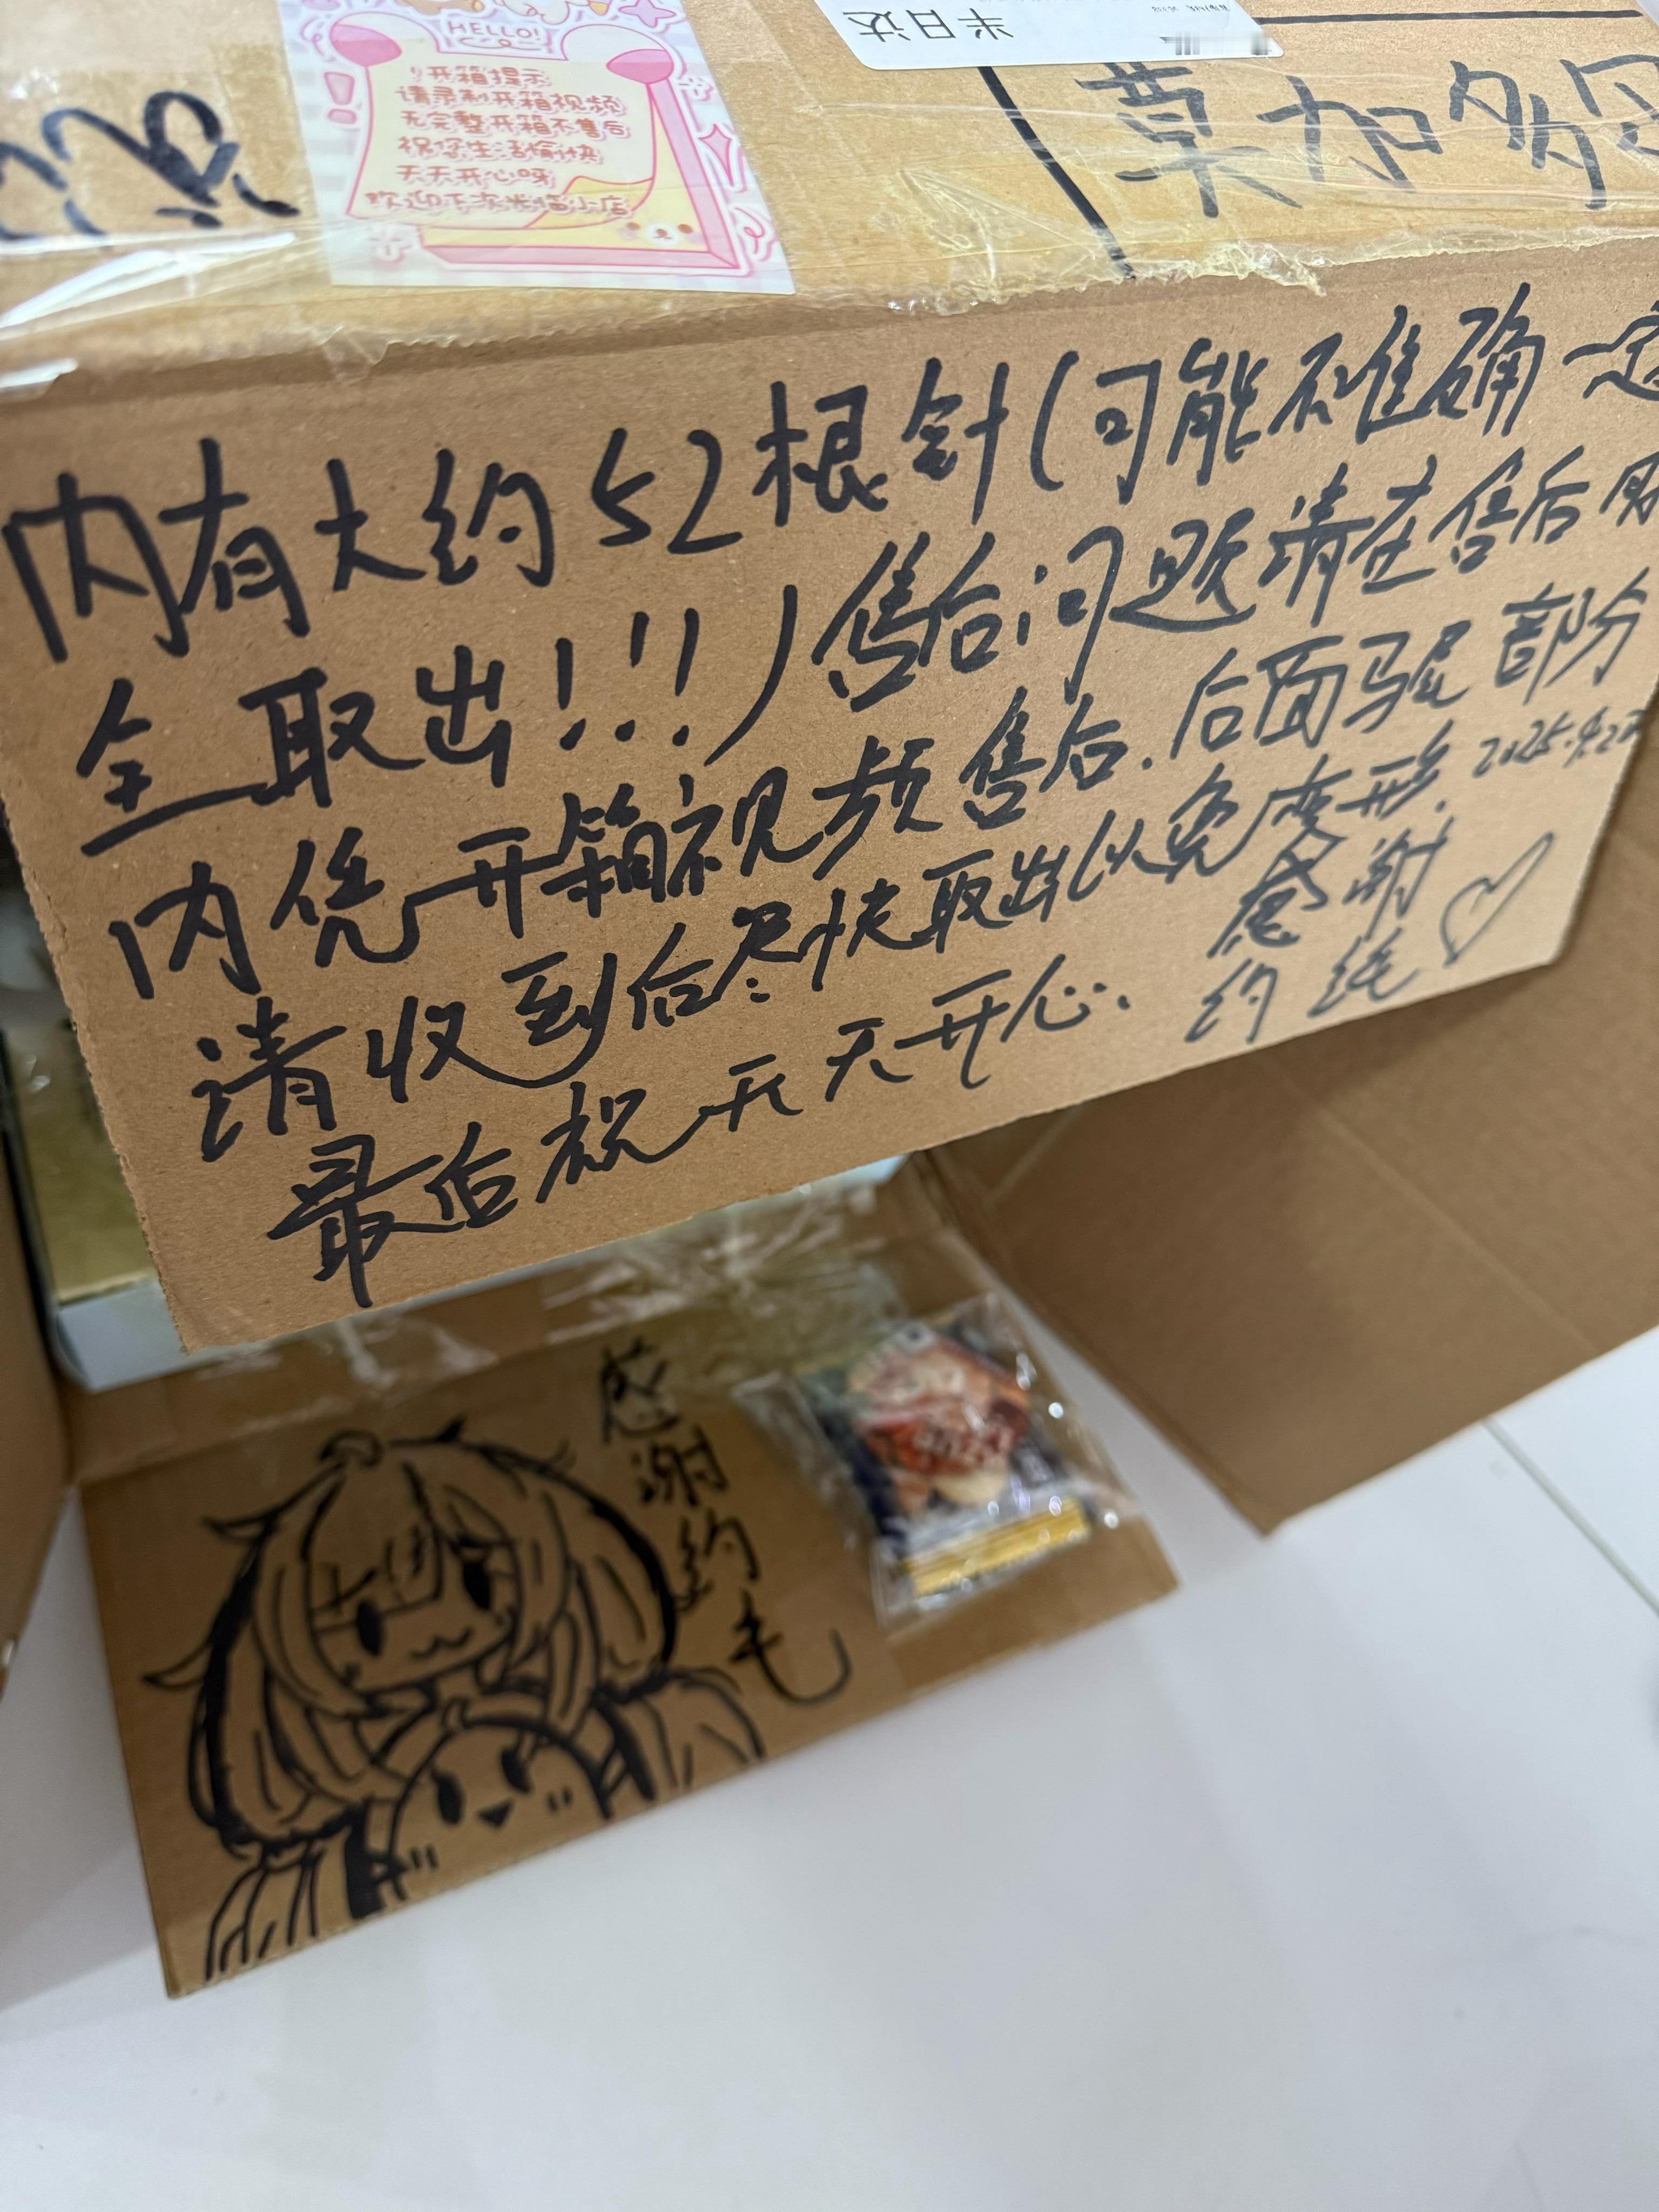 HELLO!
!开箱提示
请录制开箱视频
无完整开箱不售后
祝您生活愉快
天天开心呀
欢迎下次光临小店
半日达
莫加多
内有大约52根针(可能不准确一定
全取出!!!)售后问题请在售后期
内凭开箱视频售后.后面马尾部分
请收到后尽快取出以免变形. 2025.4.22
最后祝天天开心.
感谢
约毛♡
感谢约毛